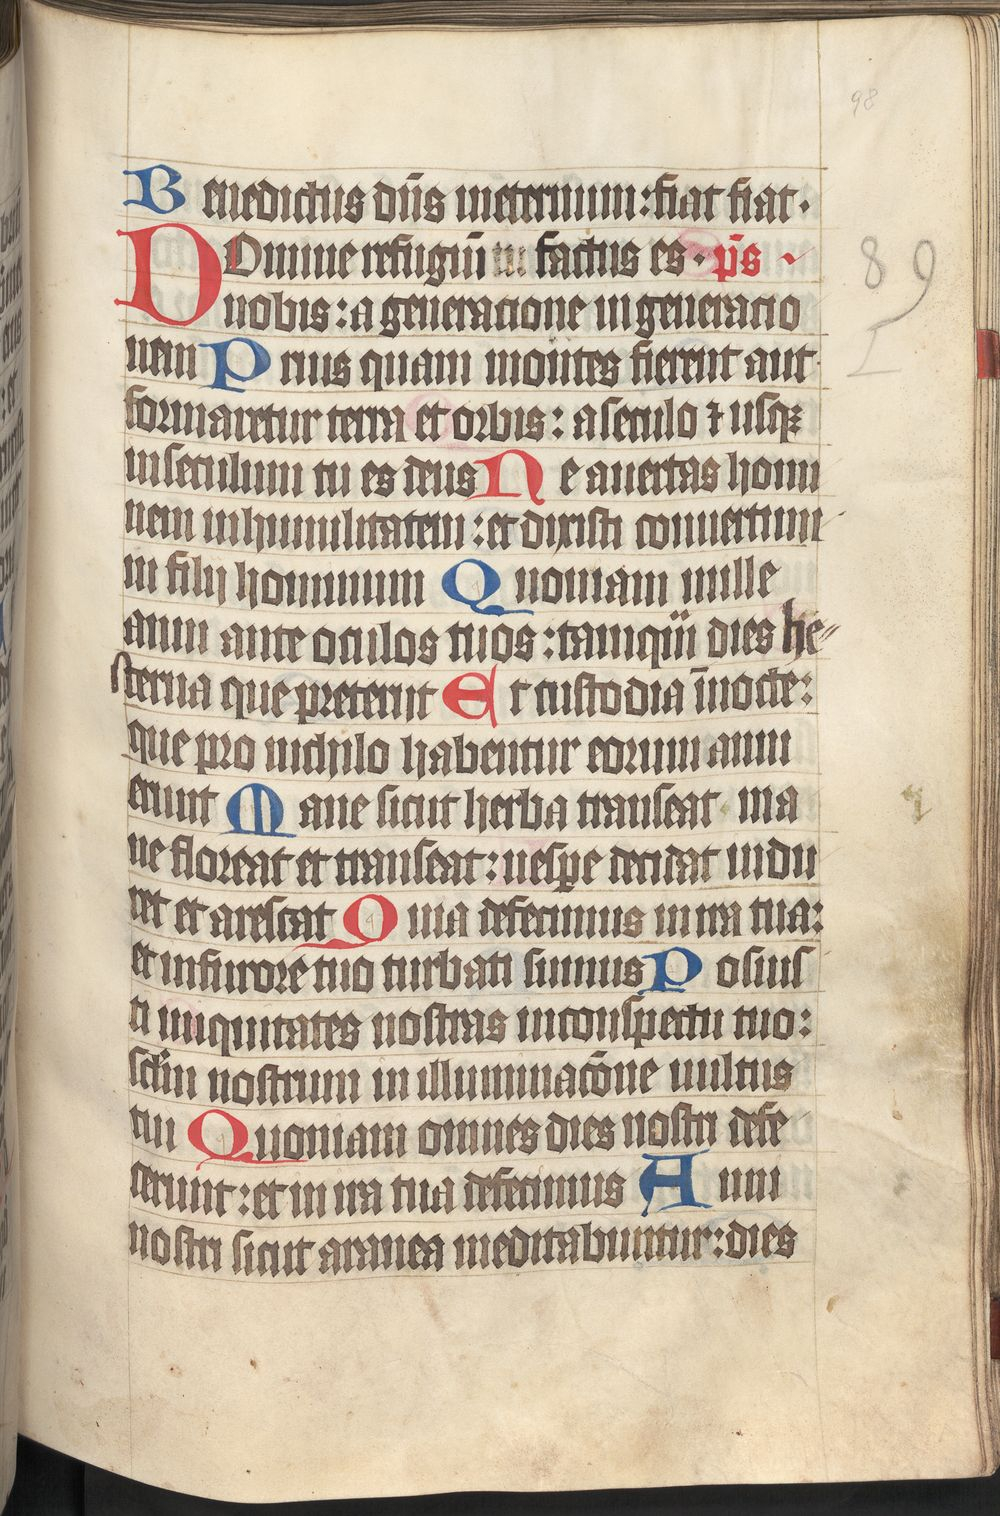 98
Benedictus dn̄s ineternum: fiat fiat.
DOmine refugiū factus es . ps̄
89
nobis: a generacione in generacio
I
nem Prius quam montes fierent aut
formaretur terra et orbis: a seculo ⁊ usqꝫ
inseculum tu es deus Ne auertas homi
nem inhumilitatem: et dixisti conuertimi
ni filij hominum Quoniam mille
anni ante oculos tuos: tamqūi dies he
sterna que preterijt Et custodia īnocte:
que pro nichilo habentur eorum anni
erunt Mane sicut herba transeat ma
ne floreat et transeat: uespe decidat indu
ret et arescat Quia defecimus in ira tua:
et infurore tuo turbati sumus Posuis
ti iniquitates nostras inconspectu tuo:
sclm̄ nostrum in illuminacōne uultus
tui Quoniam omnes dies nostri defe
cerunt: et in ira tua defecimus Anni
nostri sicut aranea meditabuntur: dies